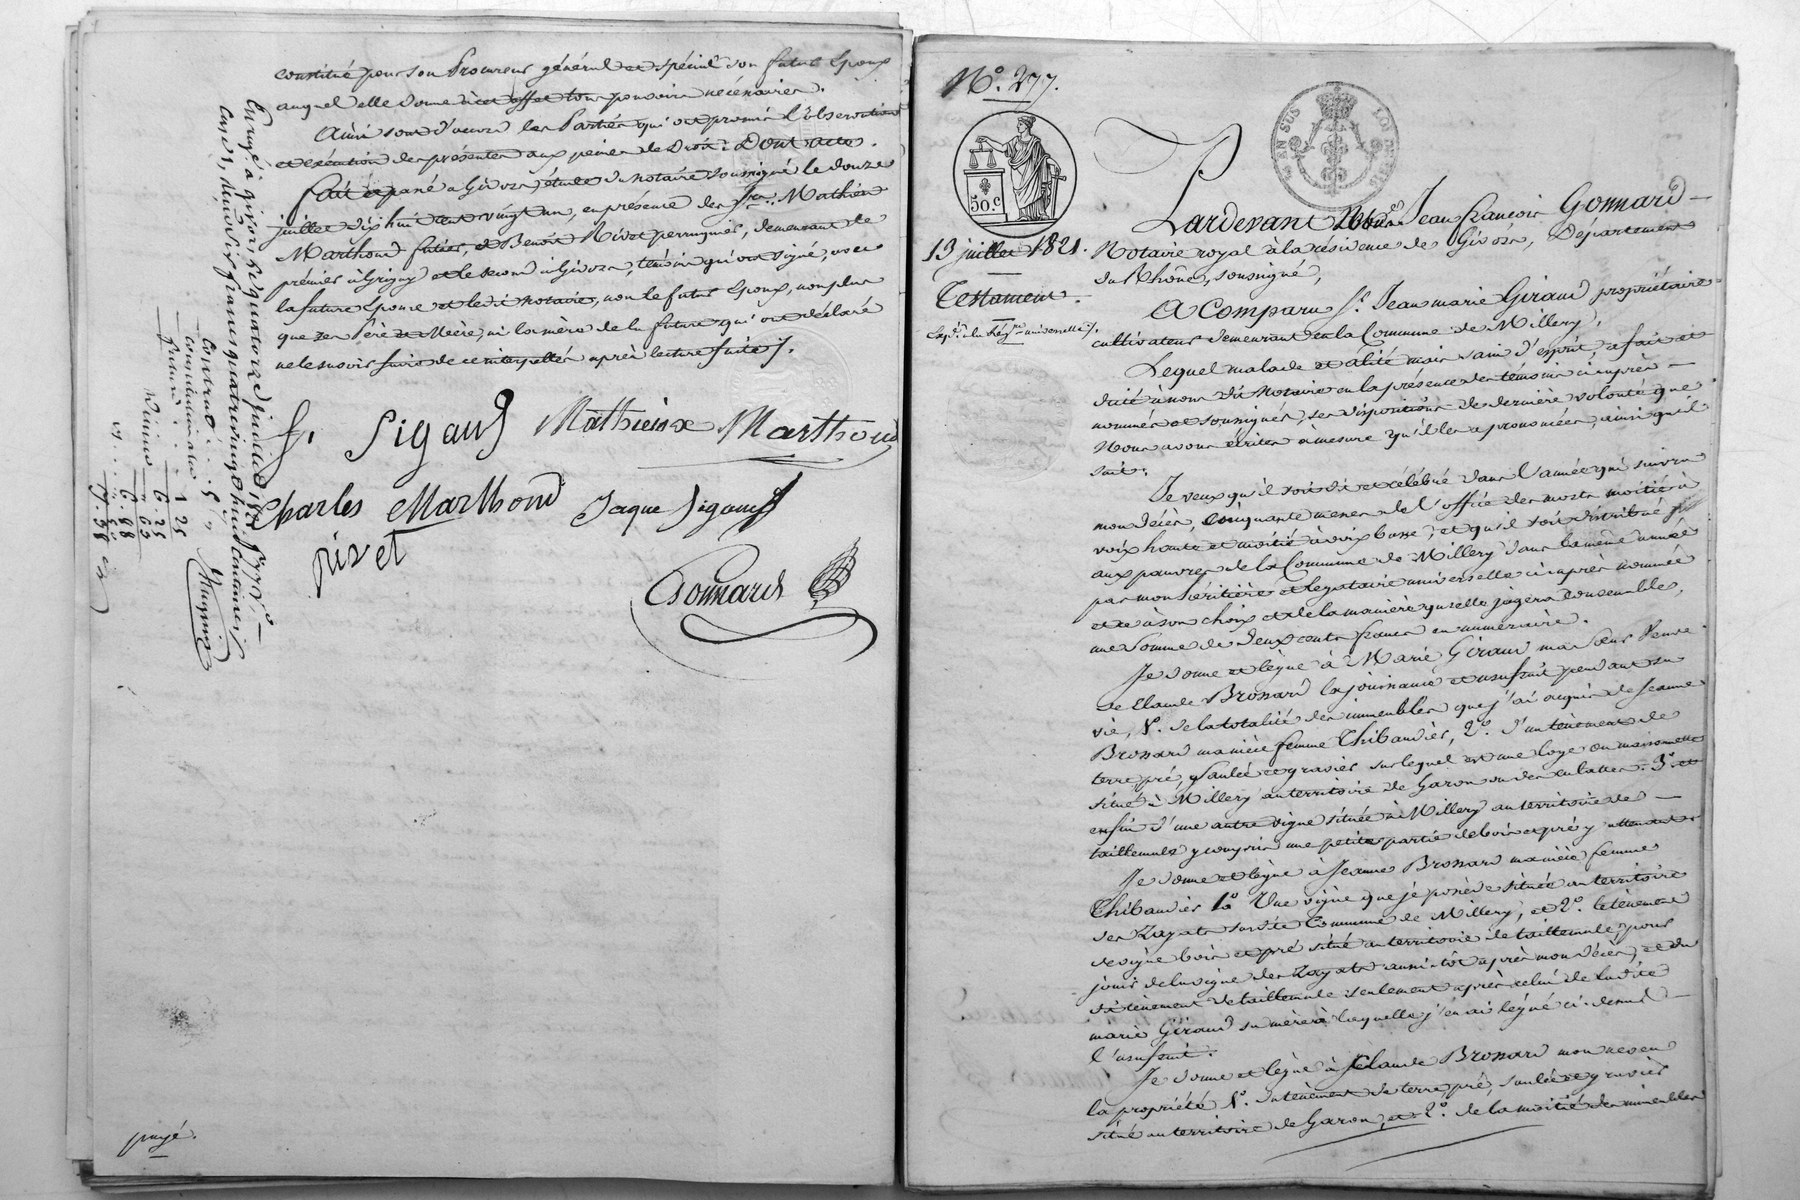 constitué pour son Procureur général et spécial son futur Epoux
auquel elle donne à cet effet tous pouvoirs nécessaires.
Ainsi sont d'accord les Parties qui ont promis l'observation
et exécution des présentes aux peines de Droit. Dont acte.
Fait et passé à Givors étude du notaire soussigné le douze
juillet dix huit cent vingt un, en présence des Srs. Mathieu
Marthoud futier, et Benoit Rivet perruquier, demeurant le
premier à Grigny et le second à Givors, témoins qui ont signé, avec
la future Epouse et le dit notaire, non le futur Epoux, non plus
que ses Père et Mère, ni la mère de la future qui ont déclaré
ne le savoir faire de ce interpellés après lecture faite.
f. Sigaud Mathieux Marthoud
Charles Marthoud Jaque Sigaud
rivet
Gonnard
Enregé. à givors, le quatorze juillet 1821
Contrat
5
1 25
6. 25
Décime
63
6. 88
payé.
N°. 277.
50 c
13 juillet 1821.
Testament.
Pardevant Me. Jean François Gonnard
Notaire royal à la résidence de Givors, Département
du Rhône, soussigné,
A Comparu Sr. Jean marie Giraud propriétaire
cultivateur demeurant en la Commune de Millery,
Lequel malade et alité mais sain d'esprit, a fait et
dicté à nous dit notaire en la présence des témoins ci après
nommés et soussignés, ses dispositions de dernière volonté que
Nous avons écrites à mesure qu'il les a prononcées, ainsi qu'il
suit:
Je veux qu'il soit dit et célébré dans l'année qui suivra
mon décès, cinquante messes de l'office des morts moitié à
voix haute et moitié à voix basse, et qu'il soit distribué
aux pauvres de la Commune de Millery dans la même année
par mon héritière et légataire universelle ci après nommée
et à son choix et de la manière qu'elle jugera convenable,
une somme de deux cents francs en numéraire.
Je donne et lègue à Marie Giraud ma sœur Veuve
de Claude Brossard la jouissance et usufruit pendant sa
vie, 1°. de la totalité des immeubles que j'ai acquis de Jeanne
Brossard ma nièce femme Thibaudier, 2°. d'un tènement de
terre, pré, saulée et gravier sur lequel est une loge ou maisonnette
situé à Millery au territoire de Garon ou des 3°. et
enfin d'une autre vigne située à Millery au territoire de
taillemule y compris une petite partie de bois et pré y attenant
Je donne et lègue à Jeanne Brossard ma nièce femme
Thibaudier 1°. Une vigne que je possède située au territoire
des Zayats sur dite Commune de Millery, et 2°. le tènement
de vigne bois et pré situé au territoire de taillemule, pour
jouir de la vigne des Zayats aussi-tôt après mon décès, et du
dit tènement de taillemule seulement après celui de la dite
marie Giraud sa mère à laquelle j'en ai légué ci-dessus
l'usufruit.
Je donne et lègue à Claude Brossard mon neveu
la propriété 1°. du tènement de terre, pré, saulée et gravier
situé au territoire de Garon, et 2°. de la moitié des immeubles